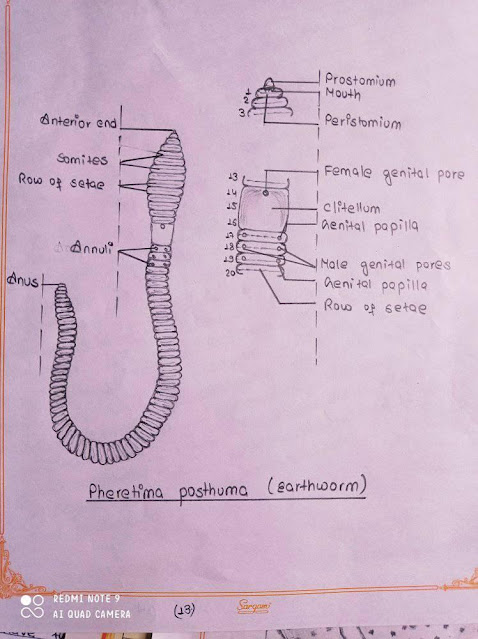 Anterior end
Somites
Row of setae
Annuli
Anus
Prostomium
1
Mouth
2
3
Peristomium
13
Female genital pore
14
15
Clitellum
16
Genital papilla
17
18
Male genital pores
19
Genital papilla
20
Row of setae
Pheretima posthuma (earthworm)
REDMI NOTE 9
AI QUAD CAMERA
(13)
Sargam